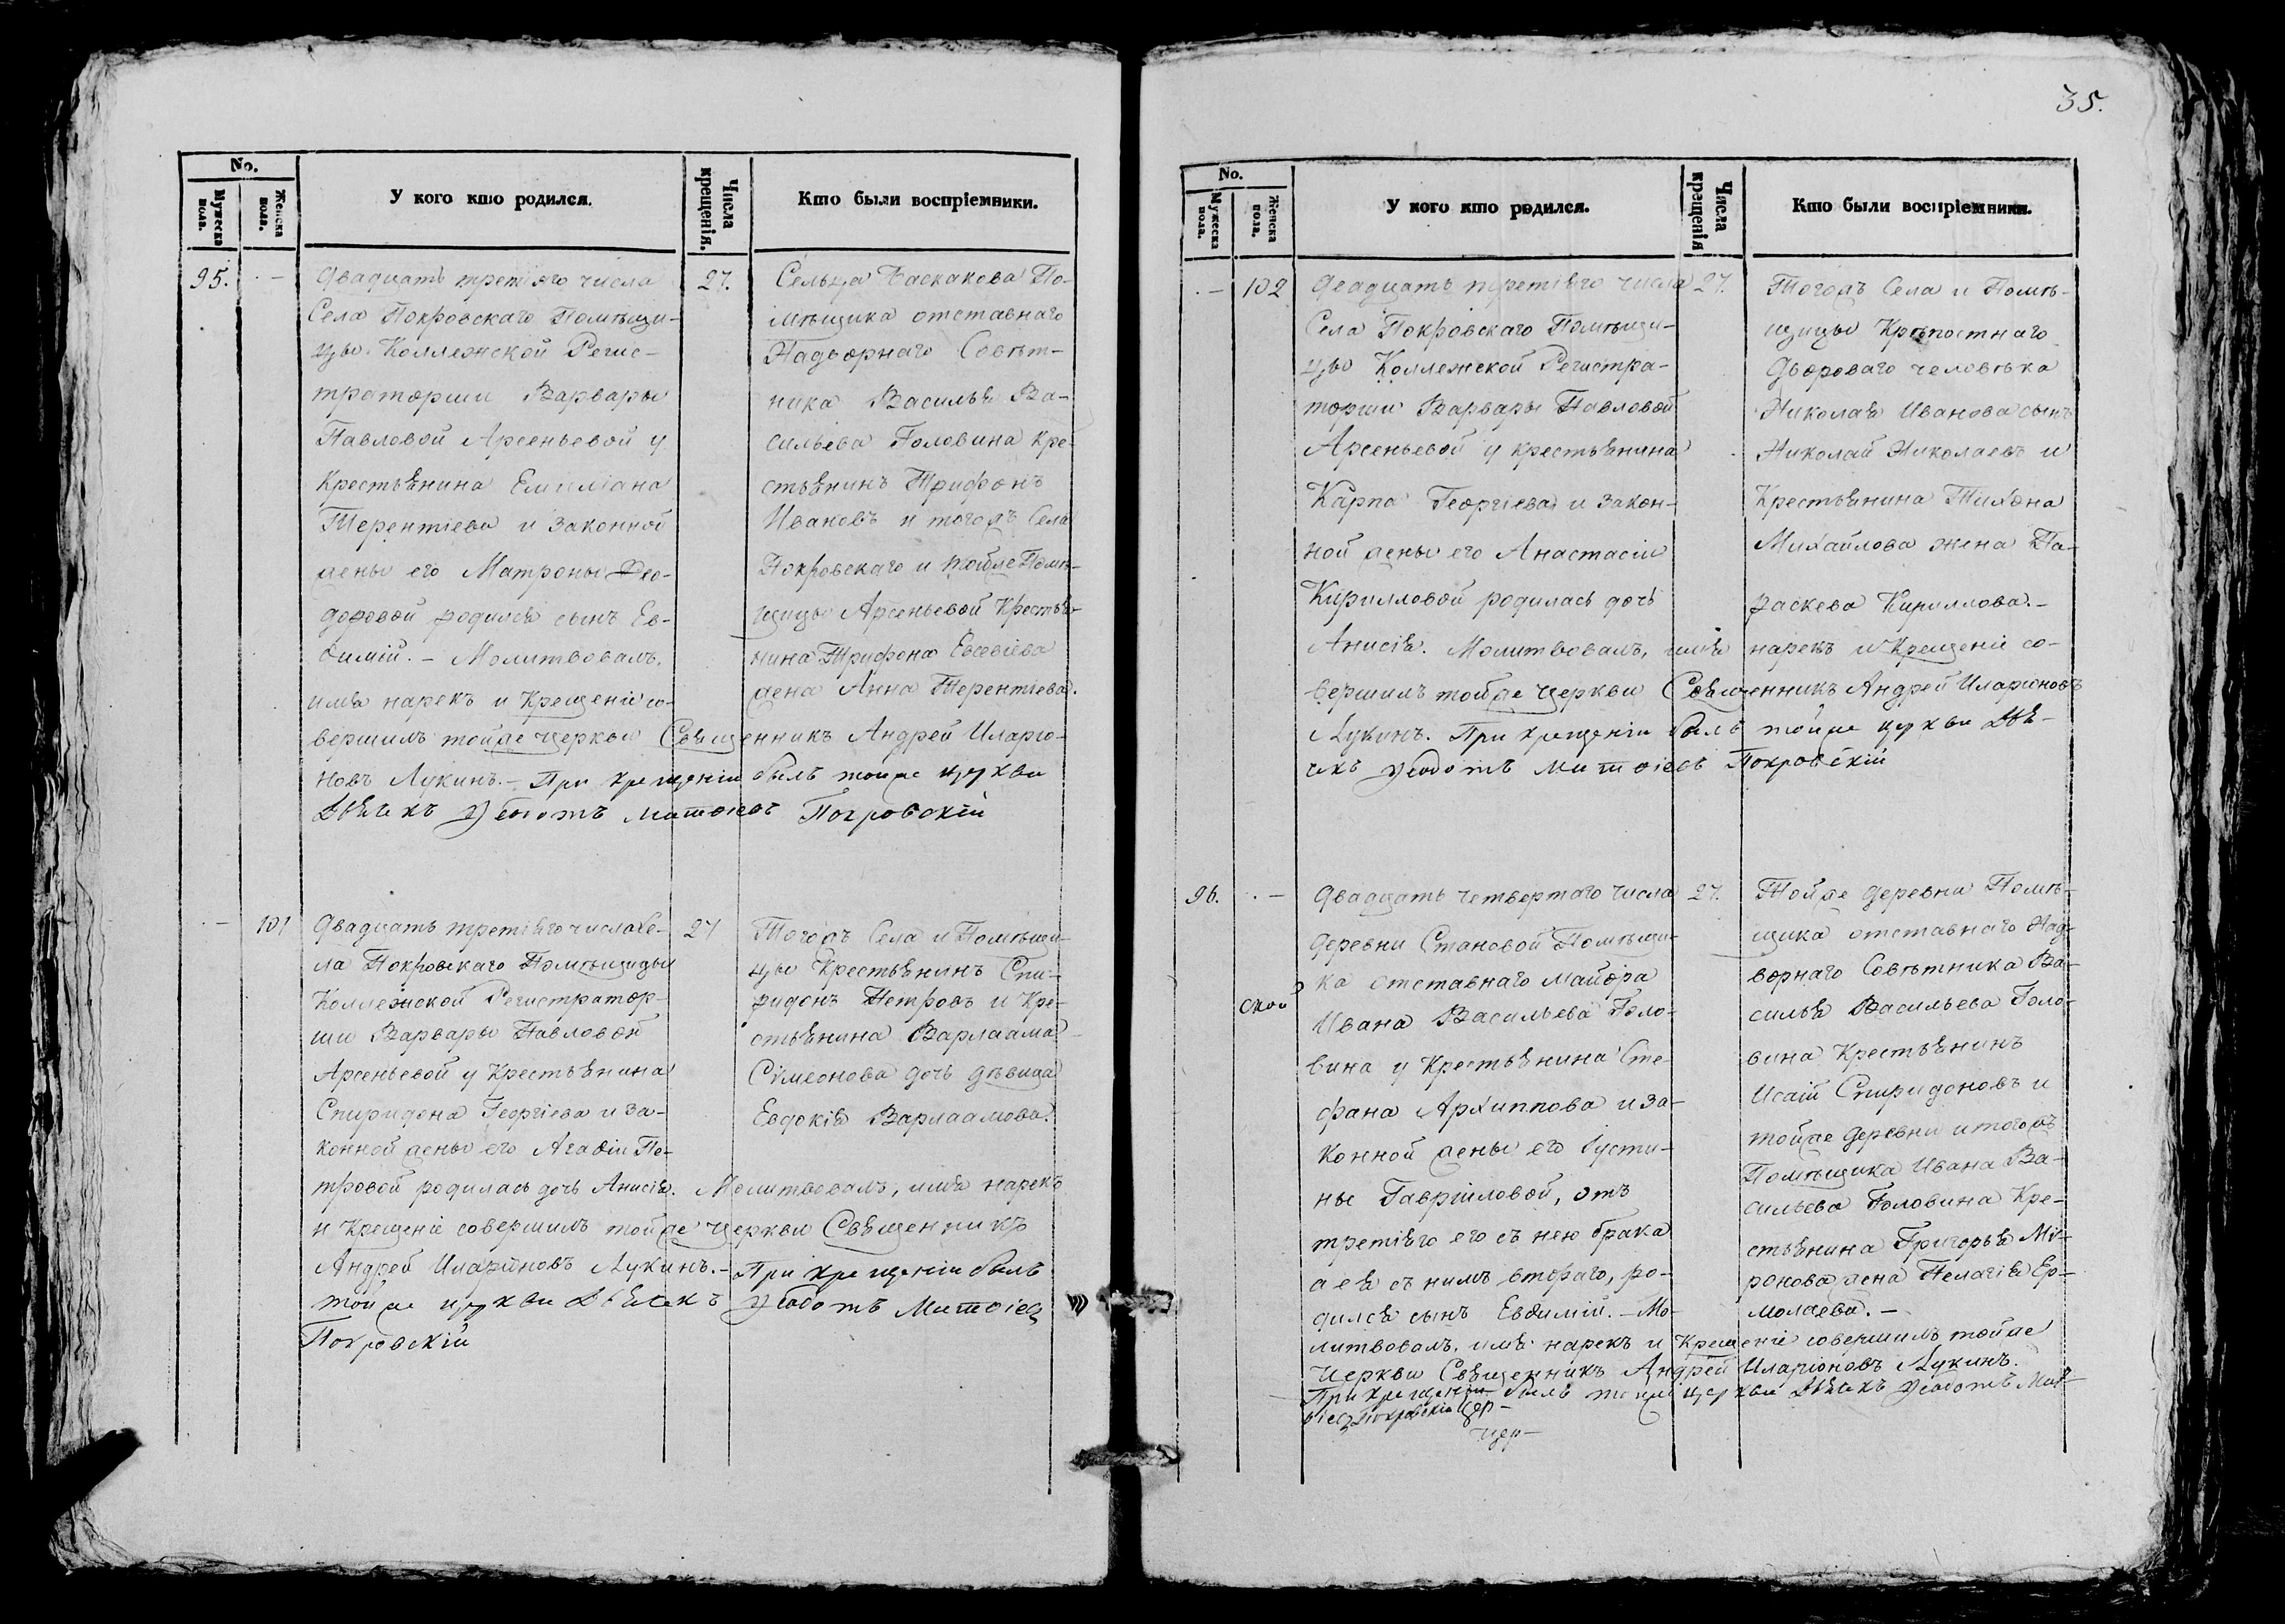 35.
No.
Мужеска пола.
Женска пола.
У кого кто родился.
Числа крещенія.
Кто были воспріемники.
95. —
Двадцать третіяго числа
Села Покровскаго Помѣщи-
цы Коллежской Регис-
траторши Варвары
Павловой Арсеньевой у
Крестьянина Емиліана
Терентіева и законной
жены его Матроны Ѳео-
доровой родился сынъ Ев-
ѳимій. – Молитвовалъ,
имя нарекъ и Крещеніе со-
вершилъ тойже Церкви Священникъ Андрей Иларіо-
новъ Лукинъ. – При крещеніи былъ тойже церкви
Дьячекъ Ѳедотъ Матѳіевъ Покровскій
27.
Сельца Баскакова По-
мѣщика отставнаго
Надворнаго Совѣт-
ника Василья Ва-
сильева Головина Кре-
стьянинъ Трифонъ
Ивановъ и тогожъ Села
Покровскаго и тойже Помѣ-
щицы Арсеньевой Крестья-
нина Трифона Евсевіева
жена Анна Терентіева.
— 101
Двадцать третіяго числа Се-
ла Покровскаго Помѣщицы
Коллежской Регистратор-
ши Варвары Павловой
Арсеньевой у Крестьянина
Спиридона Георгіева и за-
конной жены его Агаѳіи Пе-
тровой родилась дочь Анисія. Молитвовалъ, имя нарекъ
и Крещеніе совершилъ тойже Церкви Священникъ
Андрей Иларіоновъ Лукинъ. – При крещеніи былъ
тойже церкви Дьячекъ Ѳедотъ Матѳіевъ
Покровскій
27
Тогожъ Села и Помѣщи-
цы Крестьянинъ Спи-
ридонъ Петровъ и Кре-
стьянина Варлаама
Сѵмеонова дочь дѣвица
Евдокія Варлаамова.
No.
Мужеска пола.
Женска пола.
У кого кто родился.
Числа крещенія
Кто были воспріемники.
— 102
Двадцать третіяго числа
Села Покровскаго Помѣщи-
цы Коллежской Регистра-
торши Варвары Павловой
Арсеньевой у крестьянина
Карпа Георгіева и закон-
ной жены его Анастасіи
Кирилловой родилась дочь
Анисія. Молитвовалъ, имя нарекъ и Крещеніе со-
вершилъ тойже Церкви Священникъ Андрей Иларіоновъ
Лукинъ. При крещеніи былъ тойже церкви Дья-
чекъ Ѳедотъ Матѳіевъ Покровскій
27.
Тогожъ Села и Помѣ-
щицы Крѣпостнаго
Двороваго человѣка
Николая Иванова сынъ
Николай Николаевъ и
Крестьянина Тихона
Михайлова жена Па-
раскева Кириллова. –
96. —
Двадцать четвертаго числа
Деревни Становой Помѣщи-
ка отставнаго Майора
Ивана Васильева Голо-
вина у Крестьянина Сте-
фана Архиппова и за-
конной жены его Іусти-
ны Гавріиловой, отъ
третіяго его съ нею брака
а ея съ нимъ втораго, ро-
дился сынъ Евѳимій. – Мо-
литвовалъ, имя нарекъ и Крещеніе совершилъ тойже
Церкви Священникъ Андрей Иларіоновъ Лукинъ.
При крещеніи былъ тойже церкви Дьячекъ Ѳедотъ Мат-
ѳіевъ Покровскій Цер-
Цер-
27.
Тойже Деревни Помѣ-
щика отставнаго Над-
ворнаго Совѣтника Ва-
силья Васильева Голо-
вина Крестьянинъ
Исаій Спиридоновъ и
тойже Деревни и тогожъ
Помѣщика Ивана Ва-
сильева Головина Кре-
стьянина Григорья Мі-
ронова жена Пелагія Ер-
молаева. –